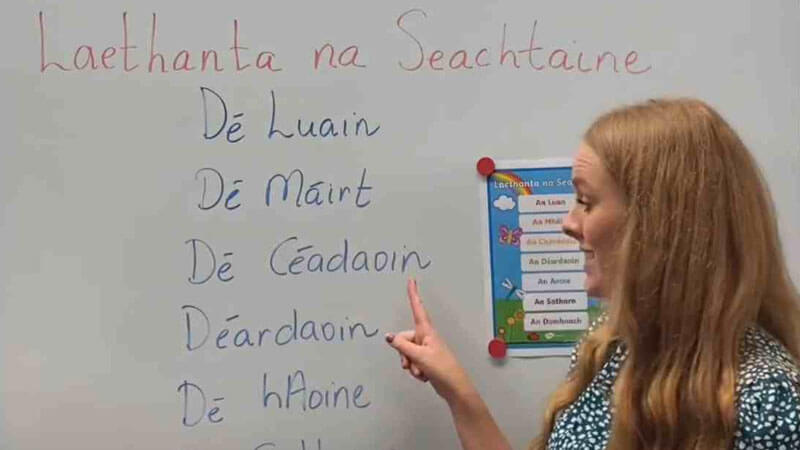 Laethanta na Seachtaine
Dé Luain
Dé Máirt
Dé Céadaoin
Déardaoin
Dé hAoine
Laethanta na Sea
An Luan
An
An
An Déardaoin
An Aoine
An Satharn
An Domhnach